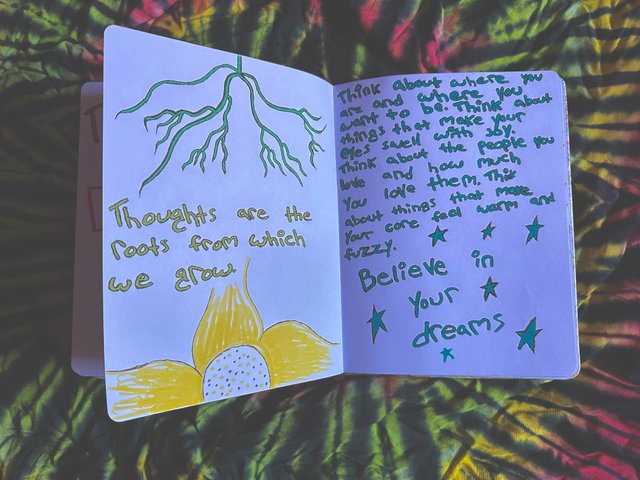 Thoughts are the
roots from which
we grow.
Think about where you
are and where you
want to be. Think about
things that make your
eyes swell with joy.
Think about the people you
love and how much
you love them. Think
about things that make
your core feel warm and
fuzzy.
Believe in
your
dreams